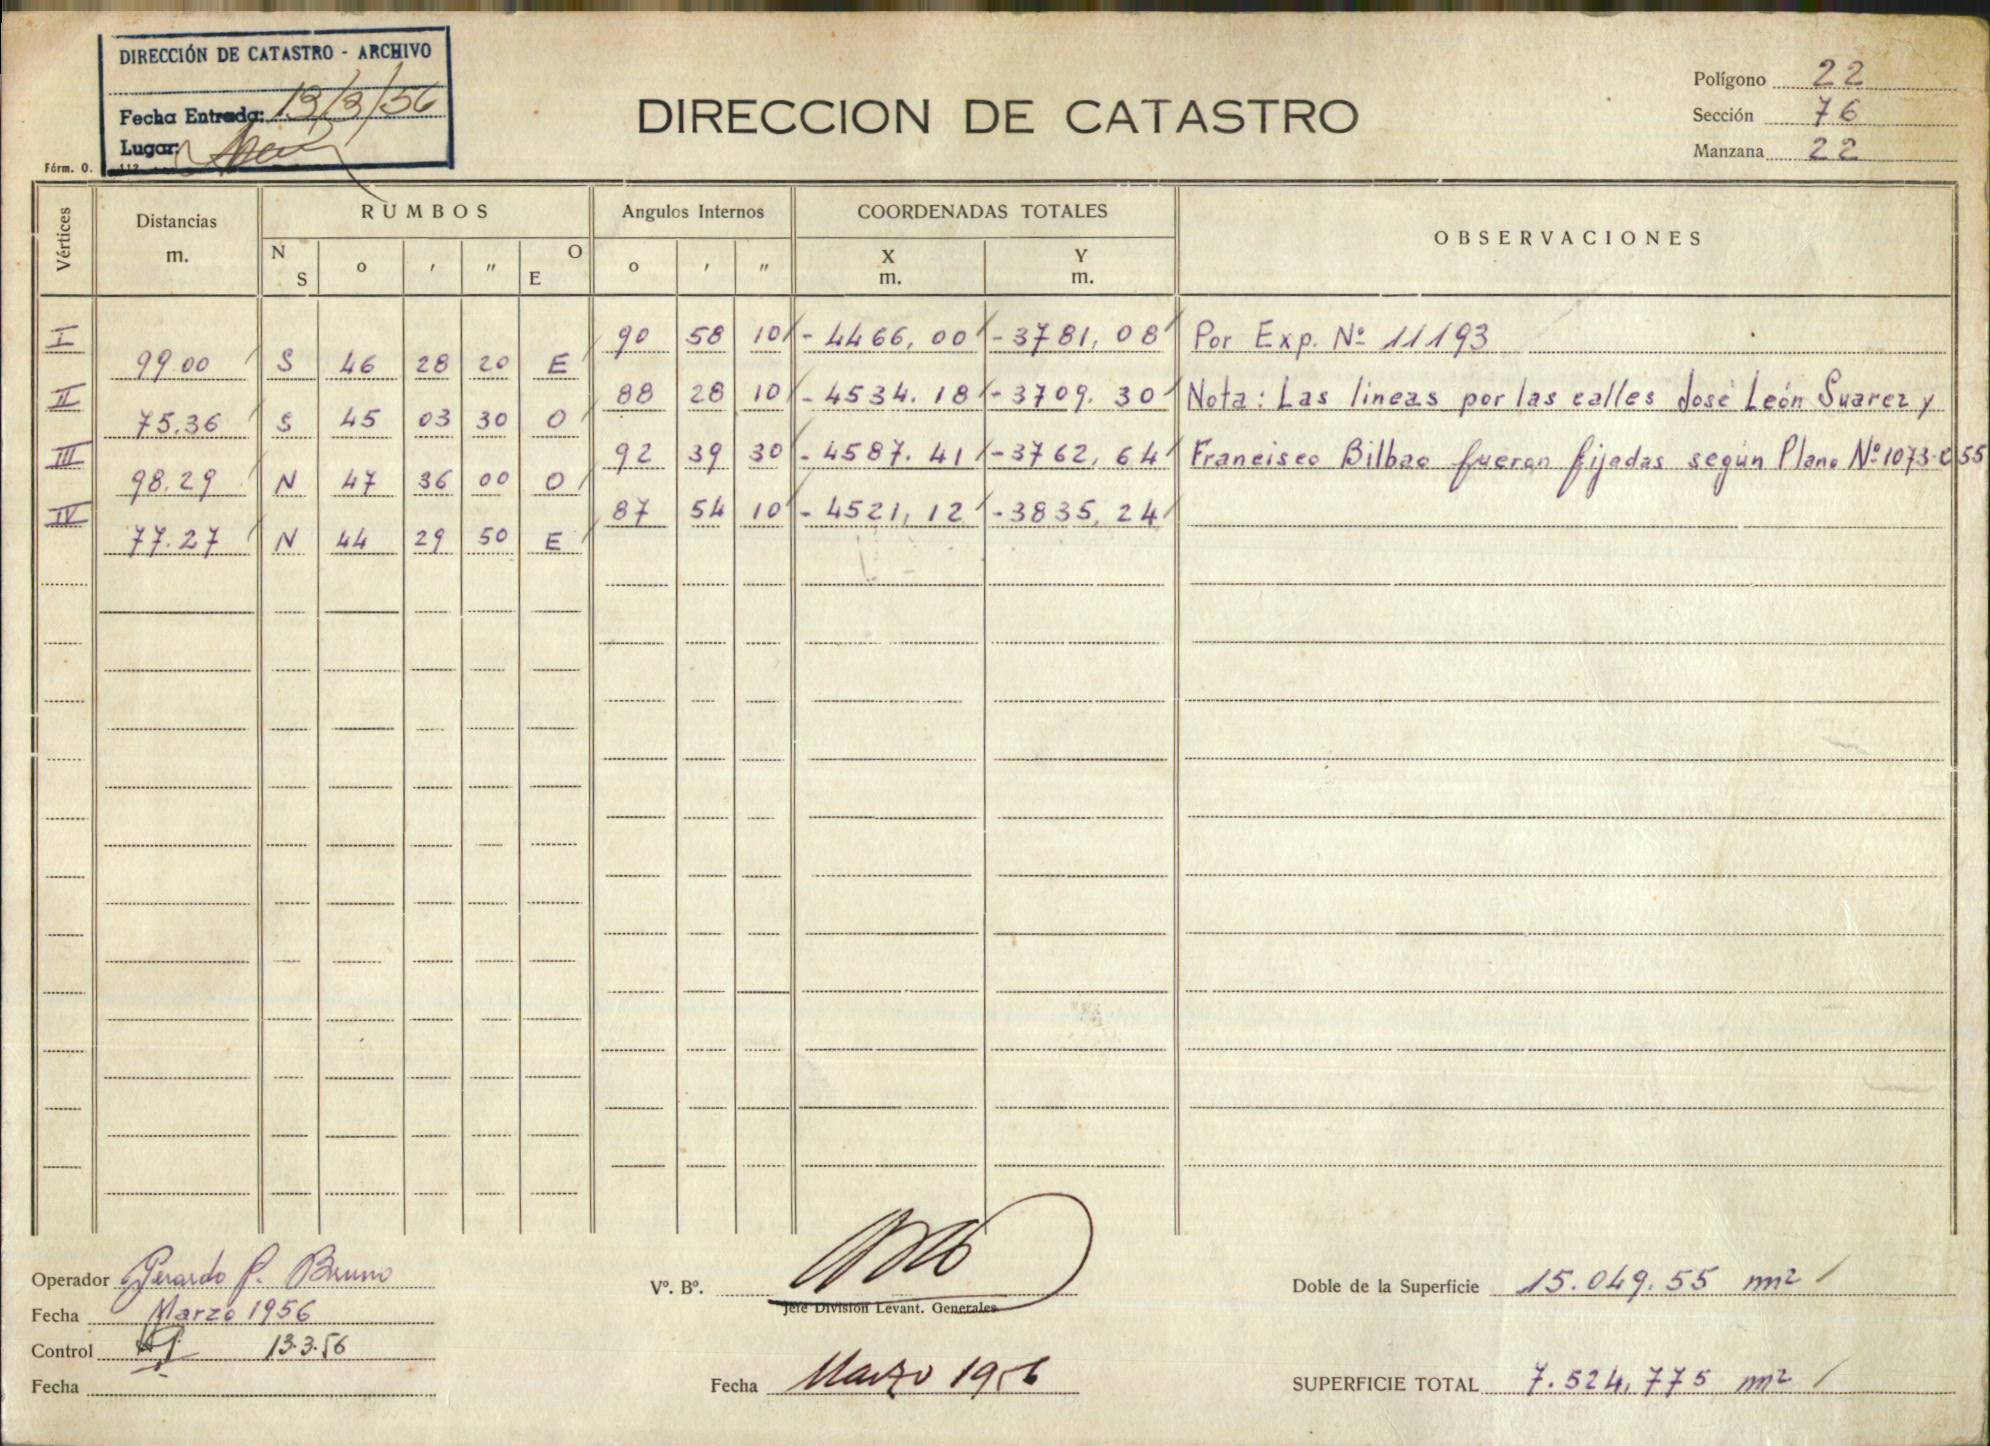 DIRECCIÓN DE CATASTRO - ARCHIVO
Fecha Entrada: 13/3/56
Lugar:
Fórm. O. 112
DIRECCION DE CATASTRO
Polígono 22
Sección 76
Manzana 22
Vértices
Distancias
m.
RUMBOS
N S o ' " O E
Angulos Internos
o ' "
COORDENADAS TOTALES
X
m.
Y
m.
OBSERVACIONES
I 90 58 10 - 4466,00 - 3781,08 Por Exp. Nº 11193
99.00 S 46 28 20 E
II 88 28 10 - 4534.18 - 3709.30 Nota: Las lineas por las calles José León Suarez y
75.36 S 45 03 30 O
III 92 39 30 - 4587.41 - 3762,64 Francisco Bilbao fueron fijadas según Plano Nº 1073-C-55
98.29 N 47 36 00 O
IV 87 54 10 - 4521,12 - 3835,24
77.27 N 44 29 50 E
Operador Gerardo P. Bruno
Fecha Marzo 1956
Control 13.3.56
Fecha
Vº. Bº.
Jefe División Levant. Generales
Fecha Marzo 1956
Doble de la Superficie 15.049.55 m2
SUPERFICIE TOTAL 7.524,775 m2